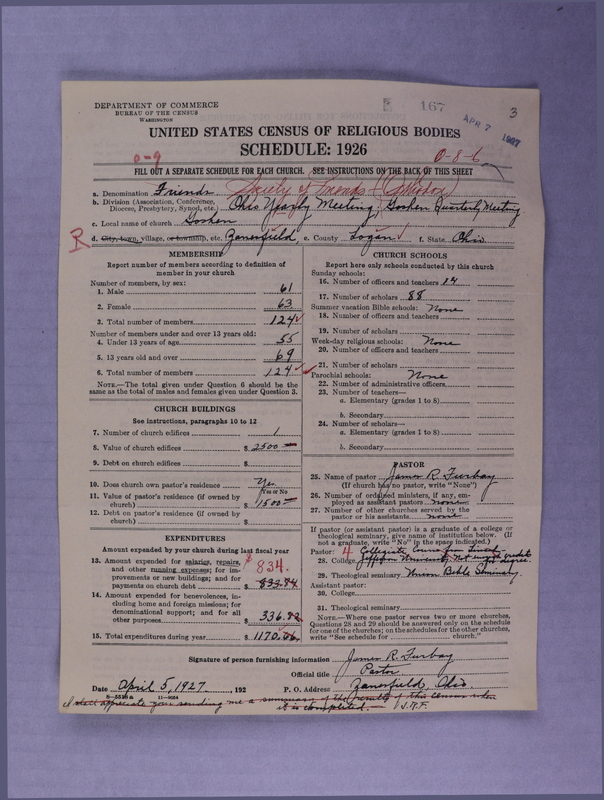 DEPARTMENT OF COMMERCE
BUREAU OF THE CENSUS
WASHINGTON
167
3
APR 7 1927
UNITED STATES CENSUS OF RELIGIOUS BODIES
SCHEDULE: 1926
0-9
0-8-6
FILL OUT A SEPARATE SCHEDULE FOR EACH CHURCH. SEE INSTRUCTIONS ON THE BACK OF THIS SHEET
a. Denomination Friends Society of Friends (Orthodox)
b. Division (Association, Conference, Diocese, Presbytery, Synod, etc.) Ohio Yearly Meeting; Goshen Quarterly Meeting
c. Local name of church Goshen
R d. City, town, village, or township, etc. Zanesfield, e. County Logan f. State Ohio
MEMBERSHIP
Report number of members according to definition of
member in your church
Number of members, by sex:
1. Male 61
2. Female 63
3. Total number of members 124
Number of members under and over 13 years old:
4. Under 13 years of age 55
5. 13 years old and over 69
6. Total number of members 124
NOTE.—The total given under Question 6 should be the
same as the total of males and females given under Question 3.
CHURCH BUILDINGS
See instructions, paragraphs 10 to 12
7. Number of church edifices 1
8. Value of church edifices $ 2500
9. Debt on church edifices $
10. Does church own pastor's residence? Yes
Yes or No
11. Value of pastor's residence (if owned by
church) $ 1500
12. Debt on pastor's residence (if owned by
church) $
EXPENDITURES
Amount expended by your church during last fiscal year
13. Amount expended for salaries, repairs,
and other running expenses; for im-
provements or new buildings; and for
payments on church debt $ 833.84 $ 834.
14. Amount expended for benevolences, in-
cluding home and foreign missions; for
denominational support; and for all
other purposes 336.82
15. Total expenditures during year $ 1170.66
CHURCH SCHOOLS
Report here only schools conducted by this church
Sunday schools:
16. Number of officers and teachers 14
17. Number of scholars 88
Summer vacation Bible schools: None
18. Number of officers and teachers
19. Number of scholars
Week-day religious schools: None
20. Number of officers and teachers
21. Number of scholars
Parochial schools: None
22. Number of administrative officers
23. Number of teachers—
a. Elementary (grades 1 to 8)
b. Secondary
24. Number of scholars—
a. Elementary (grades 1 to 8)
b. Secondary
PASTOR
25. Name of pastor James R. Furbay
(If church has no pastor, write "None")
26. Number of ordained ministers, if any, em-
ployed as assistant pastors none
27. Number of other churches served by the
pastor or his assistants none
If pastor (or assistant pastor) is a graduate of a college or
theological seminary, give name of institution below. (If
not a graduate, write "No" in the space indicated.)
Pastor: 4 Collegiate Course from
28. College
29. Theological seminary Union Bible Seminary.
Assistant pastor:
30. College
31. Theological seminary
NOTE.—Where one pastor serves two or more churches,
Questions 28 and 29 should be answered only on the schedule
for one of the churches; on the schedules for the other churches,
write "See schedule for church."
Signature of person furnishing information James R. Furbay
Official title Pastor
Date April 5, 1927 192 P. O. Address Zanesfield, Ohio.
11—9024
I shall appreciate your sending me a summary of the results of this census when
it is completed. J.R.F.